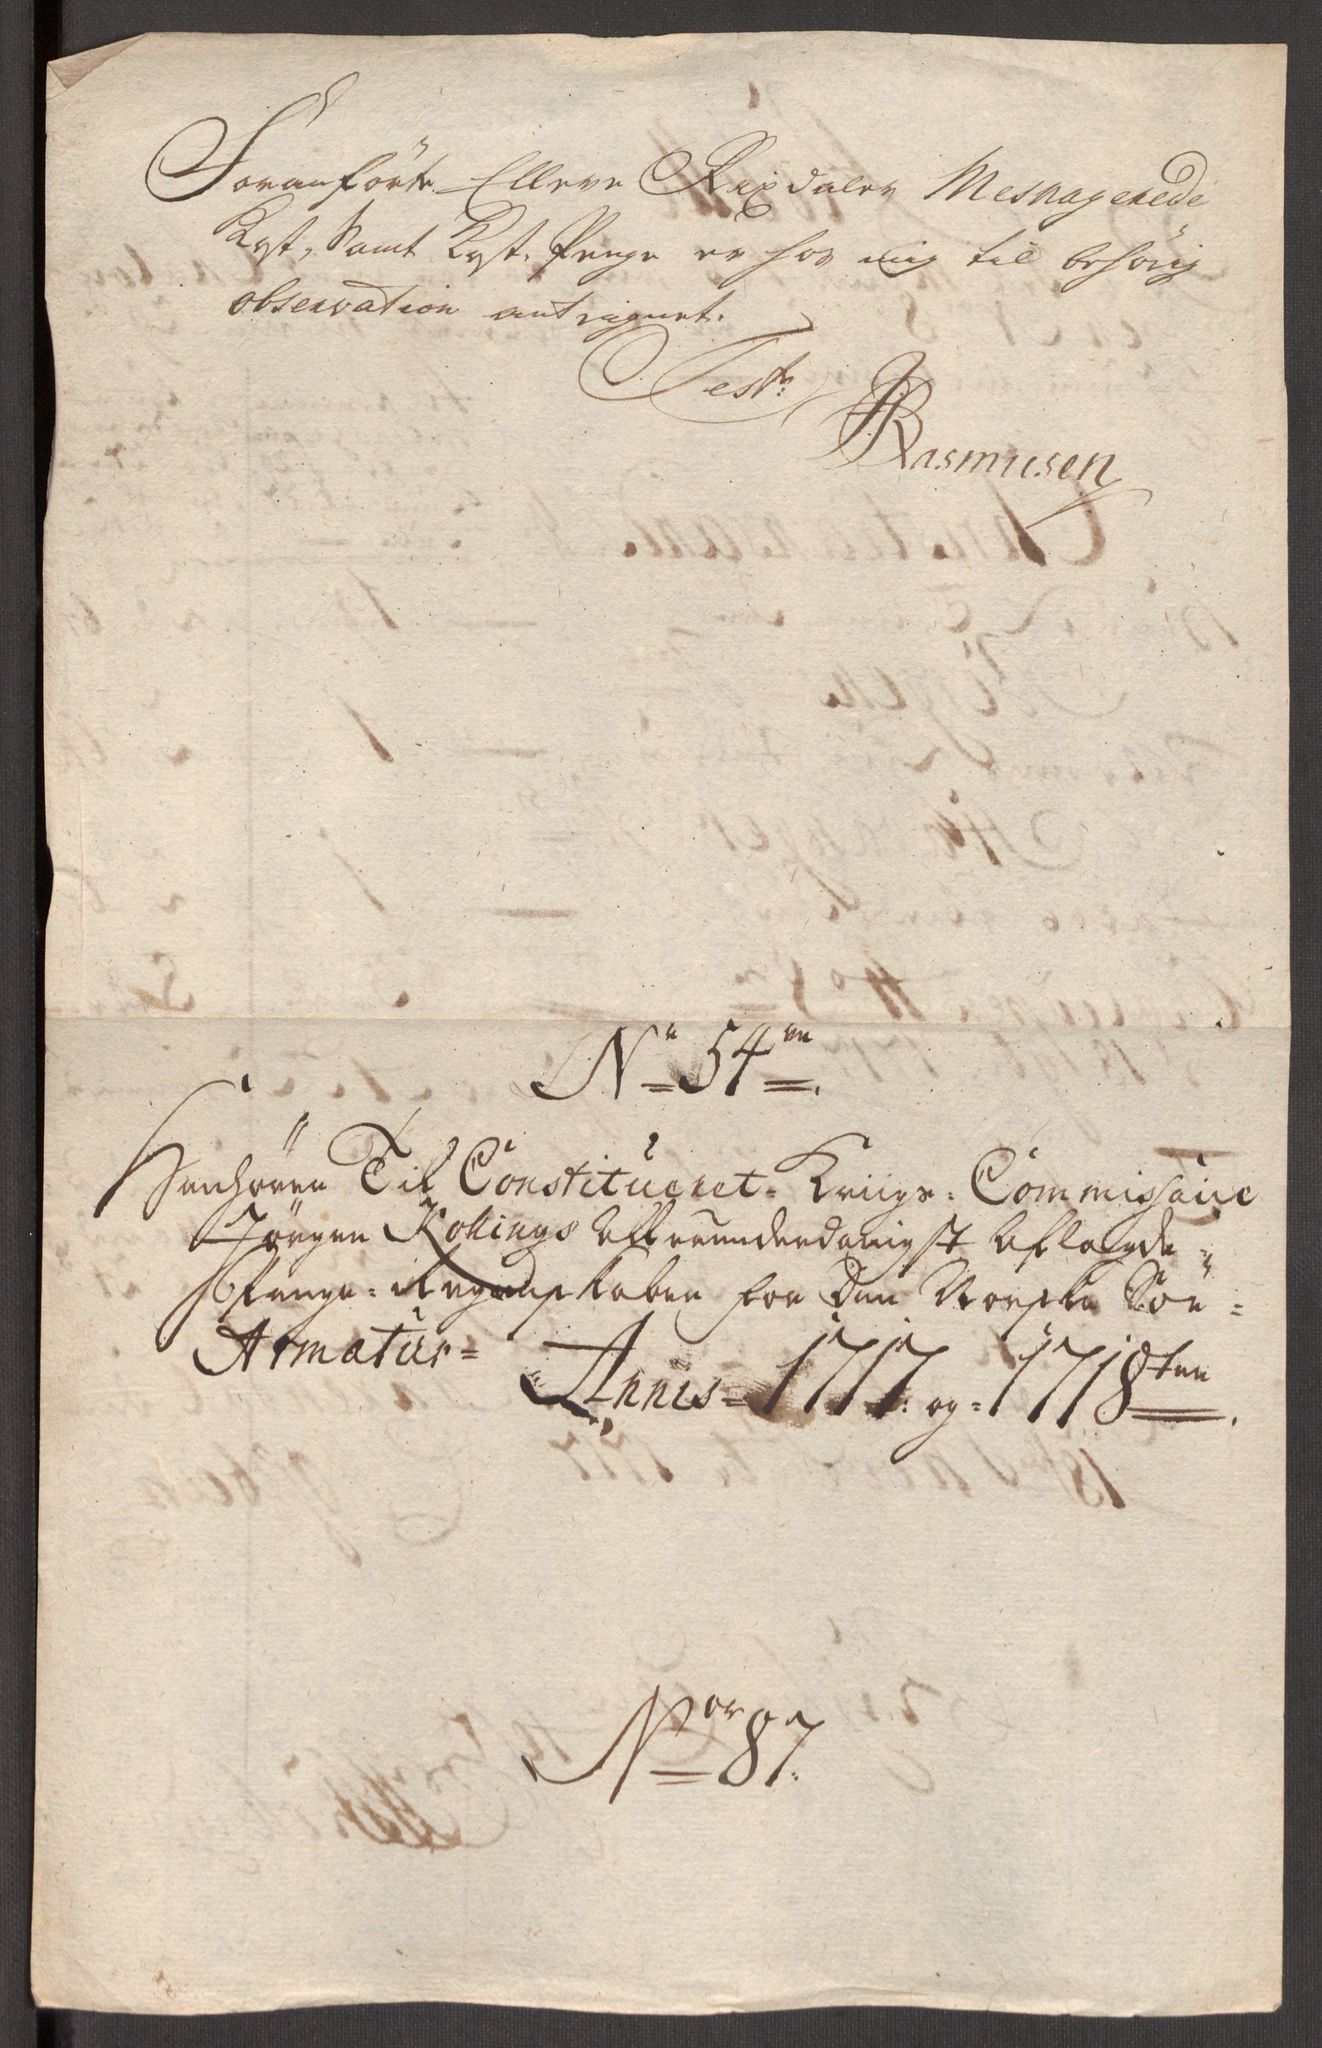 Foranförte Elleve Rixdaler Mesnagerede
Kost, samt Kost-Penge er hos mig til behörig
observation antegnet.
Test:
Rasmusen
No 54
Henhörer Til Constitueret Kriigs-Commissaire
Jörgen Kollings allerunderdanigst aflagde
Penge-Regnskaber for Den Norske Söe-
Armatur- Annis 1717 og 1718ten
Nor 87.